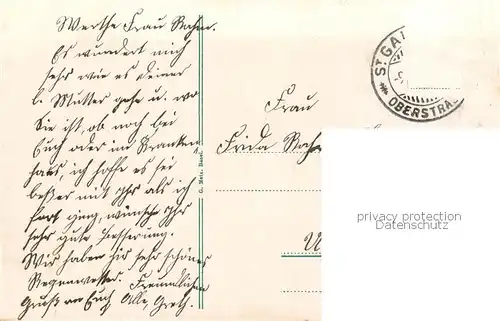 Werthe Frau Rohn.
Es wundert mich
sehr wie es deiner
l. Mutter gehe u. wo
Sie ist, ob noch bei
Euch oder im Kranken
haus, ich hoffe es sei
beßer mit Ihr als ich
fort ging, wünsche Ihr
sehr gute Besserung.
Wir haben hir sehr schönes
Regenwetter. Freundlichen
Gruß an Euch Alle, Greth.
G. Metz, Basel.
Frau
Frida
ST. GA
OBERSTRA
privacy protection
Datenschutz